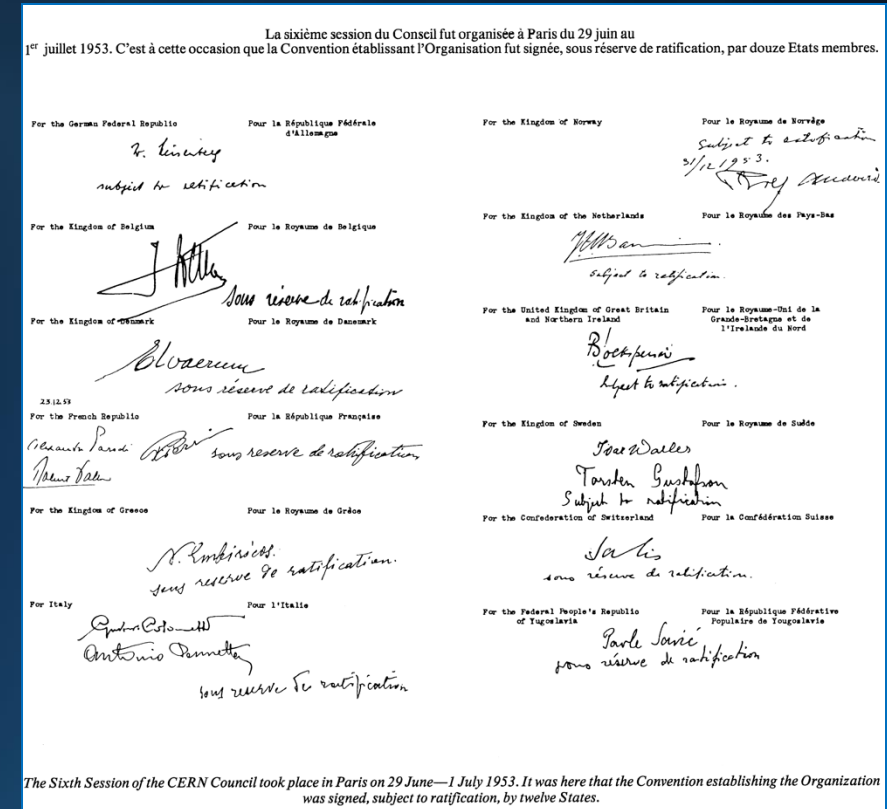 La sixième session du Conseil fut organisée à Paris du 29 juin au
1er juillet 1953. C'est à cette occasion que la Convention établissant l'Organisation fut signée, sous réserve de ratification, par douze Etats membres.
For the German Federal Republic
Pour la République Fédérale
d'Allemagne
subject to ratification
For the Kingdom of Belgium
Pour le Royaume de Belgique
sous réserve de ratification
For the Kingdom of Denmark
Pour le Royaume de Danemark
sous réserve de ratification
23.12.53
For the French Republic
Pour la République Française
Alexandre Parodi
sous reserve de ratification
For the Kingdom of Greece
Pour le Royaume de Grèce
N. Embiricos.
sous reserve de ratification.
For Italy
Pour l'Italie
Antonio Pennetta
sous reserve de ratification
For the Kingdom of Norway
Pour le Royaume de Norvège
Subject to ratification
31/12 1953.
For the Kingdom of the Netherlands
Pour le Royaume des Pays-Bas
subject to ratification.
For the United Kingdom of Great Britain
and Northern Ireland
Pour le Royaume-Uni de la
Grande-Bretagne et de
l'Irelande du Nord
subject to ratification.
For the Kingdom of Sweden
Pour le Royaume de Suède
Ivar Waller
Torsten Gustafson
Subject to ratification
For the Confederation of Switzerland
Pour la Confédération Suisse
sous réserve de ratification.
For the Federal People's Republic
of Yugoslavia
Pour la République Fédérative
Populaire de Yougoslavie
Pavle Savić
sous réserve de ratification
The Sixth Session of the CERN Council took place in Paris on 29 June—1 July 1953. It was here that the Convention establishing the Organization
was signed, subject to ratification, by twelve States.